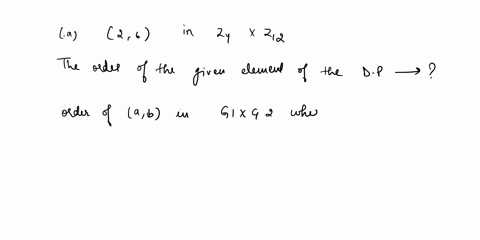 (.a) (2,6) in Z4 x Z12
The order of the given element of the D.P → ?
order of (a,b) in G1 x G2 whe